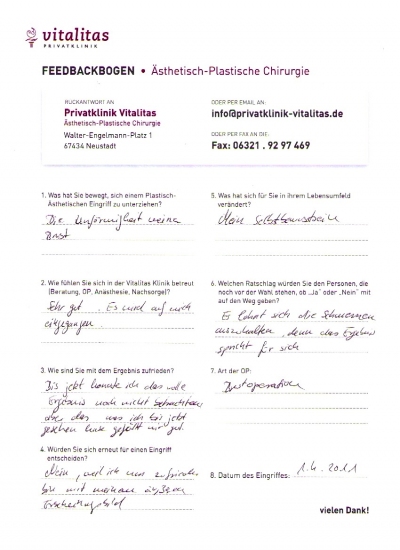 vitalitas
PRIVATKLINIK
FEEDBACKBOGEN • Ästhetisch-Plastische Chirurgie
RÜCKANTWORT AN
Privatklinik Vitalitas
Ästhetisch-Plastische Chirurgie
Walter-Engelmann-Platz 1
67434 Neustadt
ODER PER EMAIL AN:
info@privatklinik-vitalitas.de
ODER PER FAX AN DIE:
Fax: 06321 . 92 97 469
1. Was hat Sie bewegt, sich einem Plastisch-
Ästhetischen Eingriff zu unterziehen?
Die Unförmigkeit meiner
Brust
2. Wie fühlen Sie sich in der Vitalitas Klinik betreut
(Beratung, OP, Anästhesie, Nachsorge)?
Sehr gut. Es wird auf mich
eingegangen
3. Wie sind Sie mit dem Ergebnis zufrieden?
Bis jetzt konnte ich das volle
Ergebnis noch nicht betrachten
aber das was ich bis jetzt
gesehen habe gefällt mir gut.
4. Würden Sie sich erneut für einen Eingriff
entscheiden?
Nein, weil ich nun zufrieden
bin mit meinem äußeren
Erscheinungsbild
5. Was hat sich für Sie in ihrem Lebensumfeld
verändert?
Mein Selbstbewusstsein
6. Welchen Ratschlag würden Sie den Personen, die
noch vor der Wahl stehen, ob „Ja" oder „Nein" mit
auf den Weg geben?
Es lohnt sich die Schmerzen
auszuhalten, denn das Ergebnis
spricht für sich
7. Art der OP:
Brustoperation
8. Datum des Eingriffes: 1.4.2011
vielen Dank!